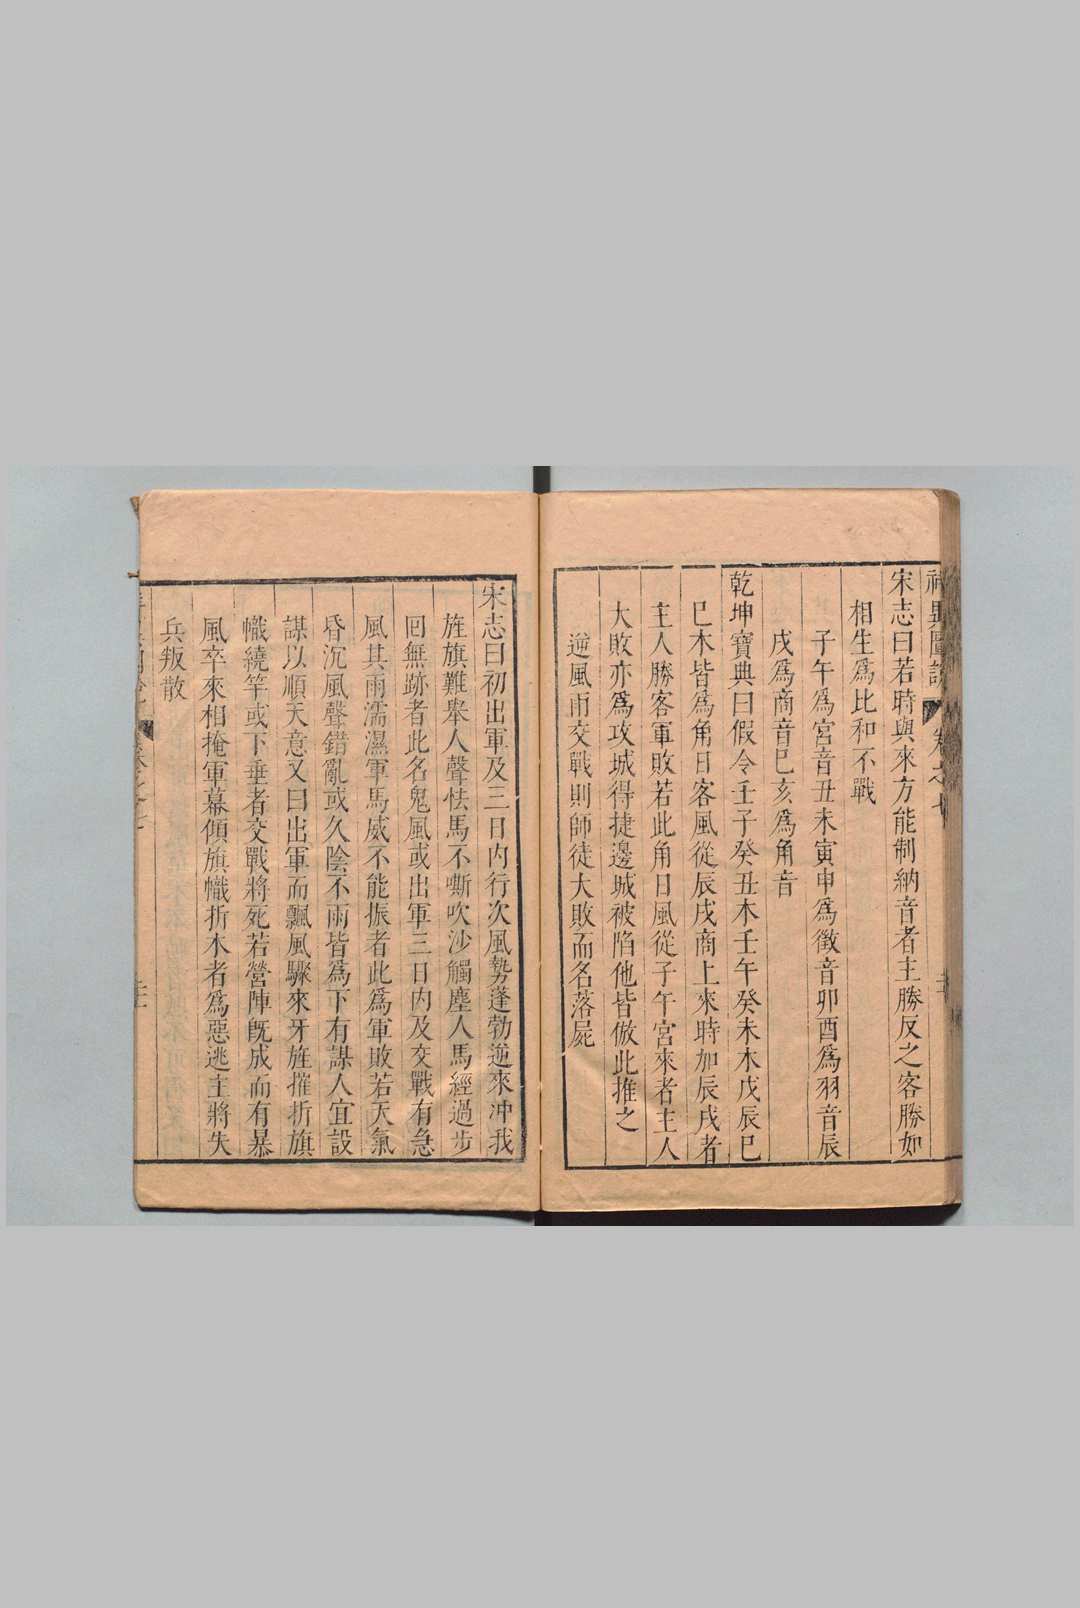 宋志曰若時與來方能制納音者主勝反之客勝如
相生爲比和不戰
子午爲宮音丑未寅申爲徵音卯酉爲羽音辰
戌爲商音巳亥爲角音
乾坤寶典曰假令壬子癸丑木壬午癸未木戊辰巳
巳木皆爲角日客風從辰戌商上來時加辰戌者
主人勝客軍敗若此角日風從子午宮來者主人
大敗亦爲攻城得捷邊城被陷他皆倣此推之
逆風雨交戰則師徒大敗而名落屍
宋志曰初出軍及三日内行次風勢蓬勃逆來冲我
旌旗難舉人聲怯馬不嘶吹沙觸塵人馬經過步
囘無跡者此名鬼風或出軍三日内及交戰有急
風其雨濡濕軍馬威不能振者此爲軍敗若天氣
昏沉風聲錯亂或久陰不雨皆爲下有謀人宜設
謀以順天意又曰出軍而飄風驟來牙旌摧折旗
幟繞竿或下垂者交戰將死若營陣旣成而有暴
風卒來相掩軍幕傾旗幟折木者爲惡逃主將失
兵叛散